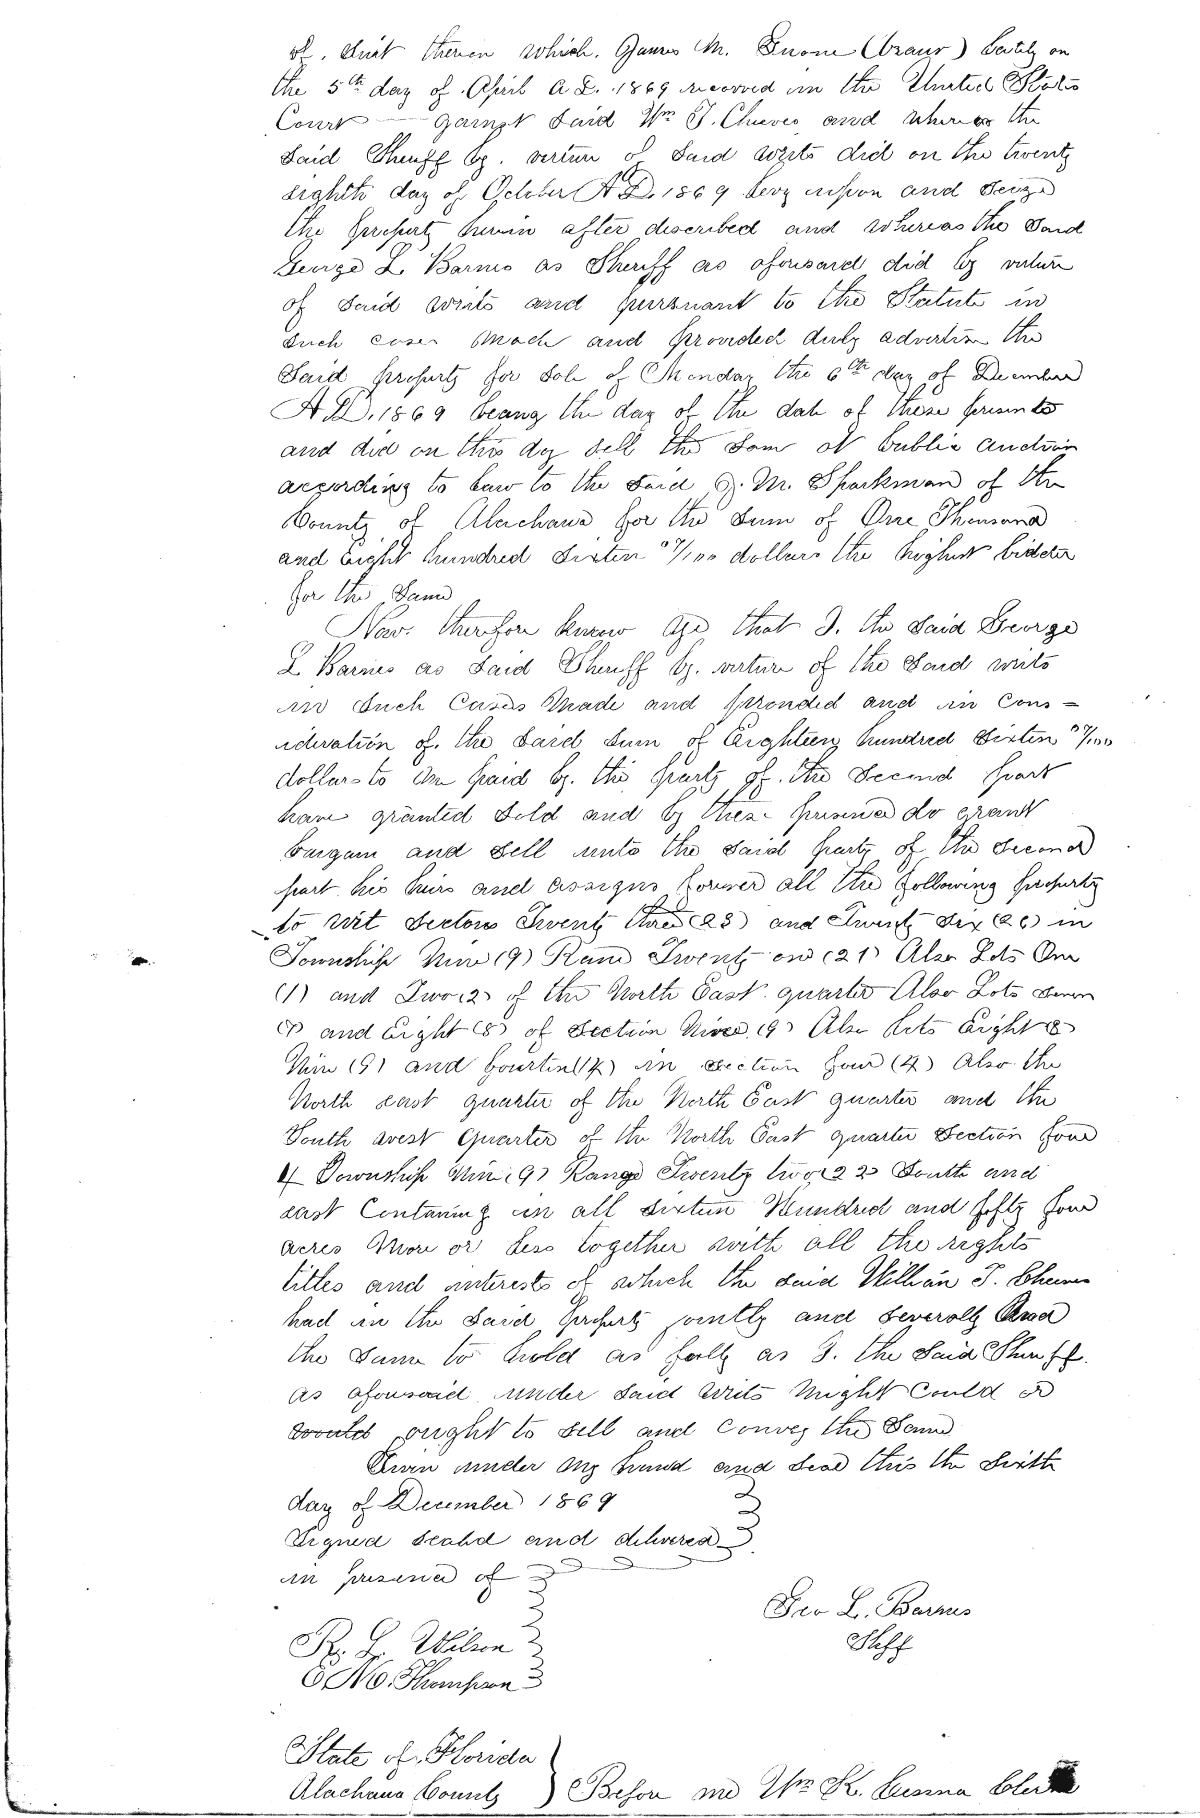 of. Suit therein which. James M. lately on
the 5th day of April A.D. 1869 recovered in the United States
Court against Said Wm J. Cheeves and whereas the
Said Sheriff by. virture of Said writs did on the twenty
eighth day of October A.D. 1869 levy upon and Seize
the property herein after discribed and whereas the Said
George L. Barnes as Sheriff as aforesaid did by virture
of Said writs and pursuant to the Statute in
Such cases Made and provided duly advertise the
Said property for Sale of Monday the 6th day of December
A.D. 1869 beang the day of the date of these presents
and did on this day Sell the Same at Public auction
according to Law to the Said J. M. Sparkman of the
County of Alachaua for the Sum of One Thousand
and Eight hundred Sixten 07/100 dollars the highest bidder
for the Same
Now. therefore know Ye that I. the Said George
L Barnes as Said Sheriff by. virture of the Said writs
in Such Cases Made and provided and in Cons=
ideration of. the Said Sum of Eighteen hundred Sixten 07/100
dollars to me paid by. the party of. the Second part
have granted Sold and by these presence do grant
bargain and Sell unto the Said party of the Second
part his heirs and assigns forever all the following property
to wit Sections Twenty three (23) and Twenty Six (26) in
Township Nine (9) Rane Twenty one (21) Also Lots One
(1) and Two (2) of the North East. quarter Also Lots Seven
(7) and Eight (8) of Section Nine (9) Also Lots Eight (8)
Nine (9) and fourtin (14) in Section four (4) Also the
North east quarter of the North East quarter and the
South west Quarter of the North East quarter Section four
4 Township Nine (9) Range Twenty two (22) South and
east Contaning in all Sixteen Hundred and fifty four
acres More or Less together with all the rights
titles and interests of which the Said William J. Cheeves
had in the Said property jointly and Severaly And
the Same to hold as fully as I. the Said Sheriff.
as aforesaid under Said Writs Might Could or
would ought to Sell and Convey the Same
Given under My hand and Seal this the Sixth
day of December 1869
Signed Seald and delivered
in presence of
Geo L. Barnes
Shff
R. L. Wilson
Thompson
State of. Florida
Alachaua County ) Before me Wm K. Cessna Clerk